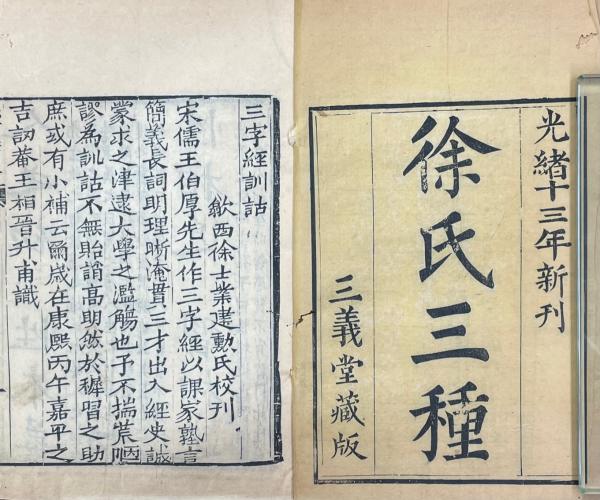 光緒十三年新刊
徐氏三種
三義堂藏版
三字經訓詁
歙西徐士業建勳氏校刊
宋儒王伯厚先生作三字經以課家塾言
簡義長詞明理晰淹貫三才出入經史誠
蒙求之津逮大學之濫觴也予不揣荒陋
謬為訓詁不無貽誚高明然於穉習之助
庶或有小補云爾歲在康熙丙午嘉平之
吉訒菴王相晉升甫識